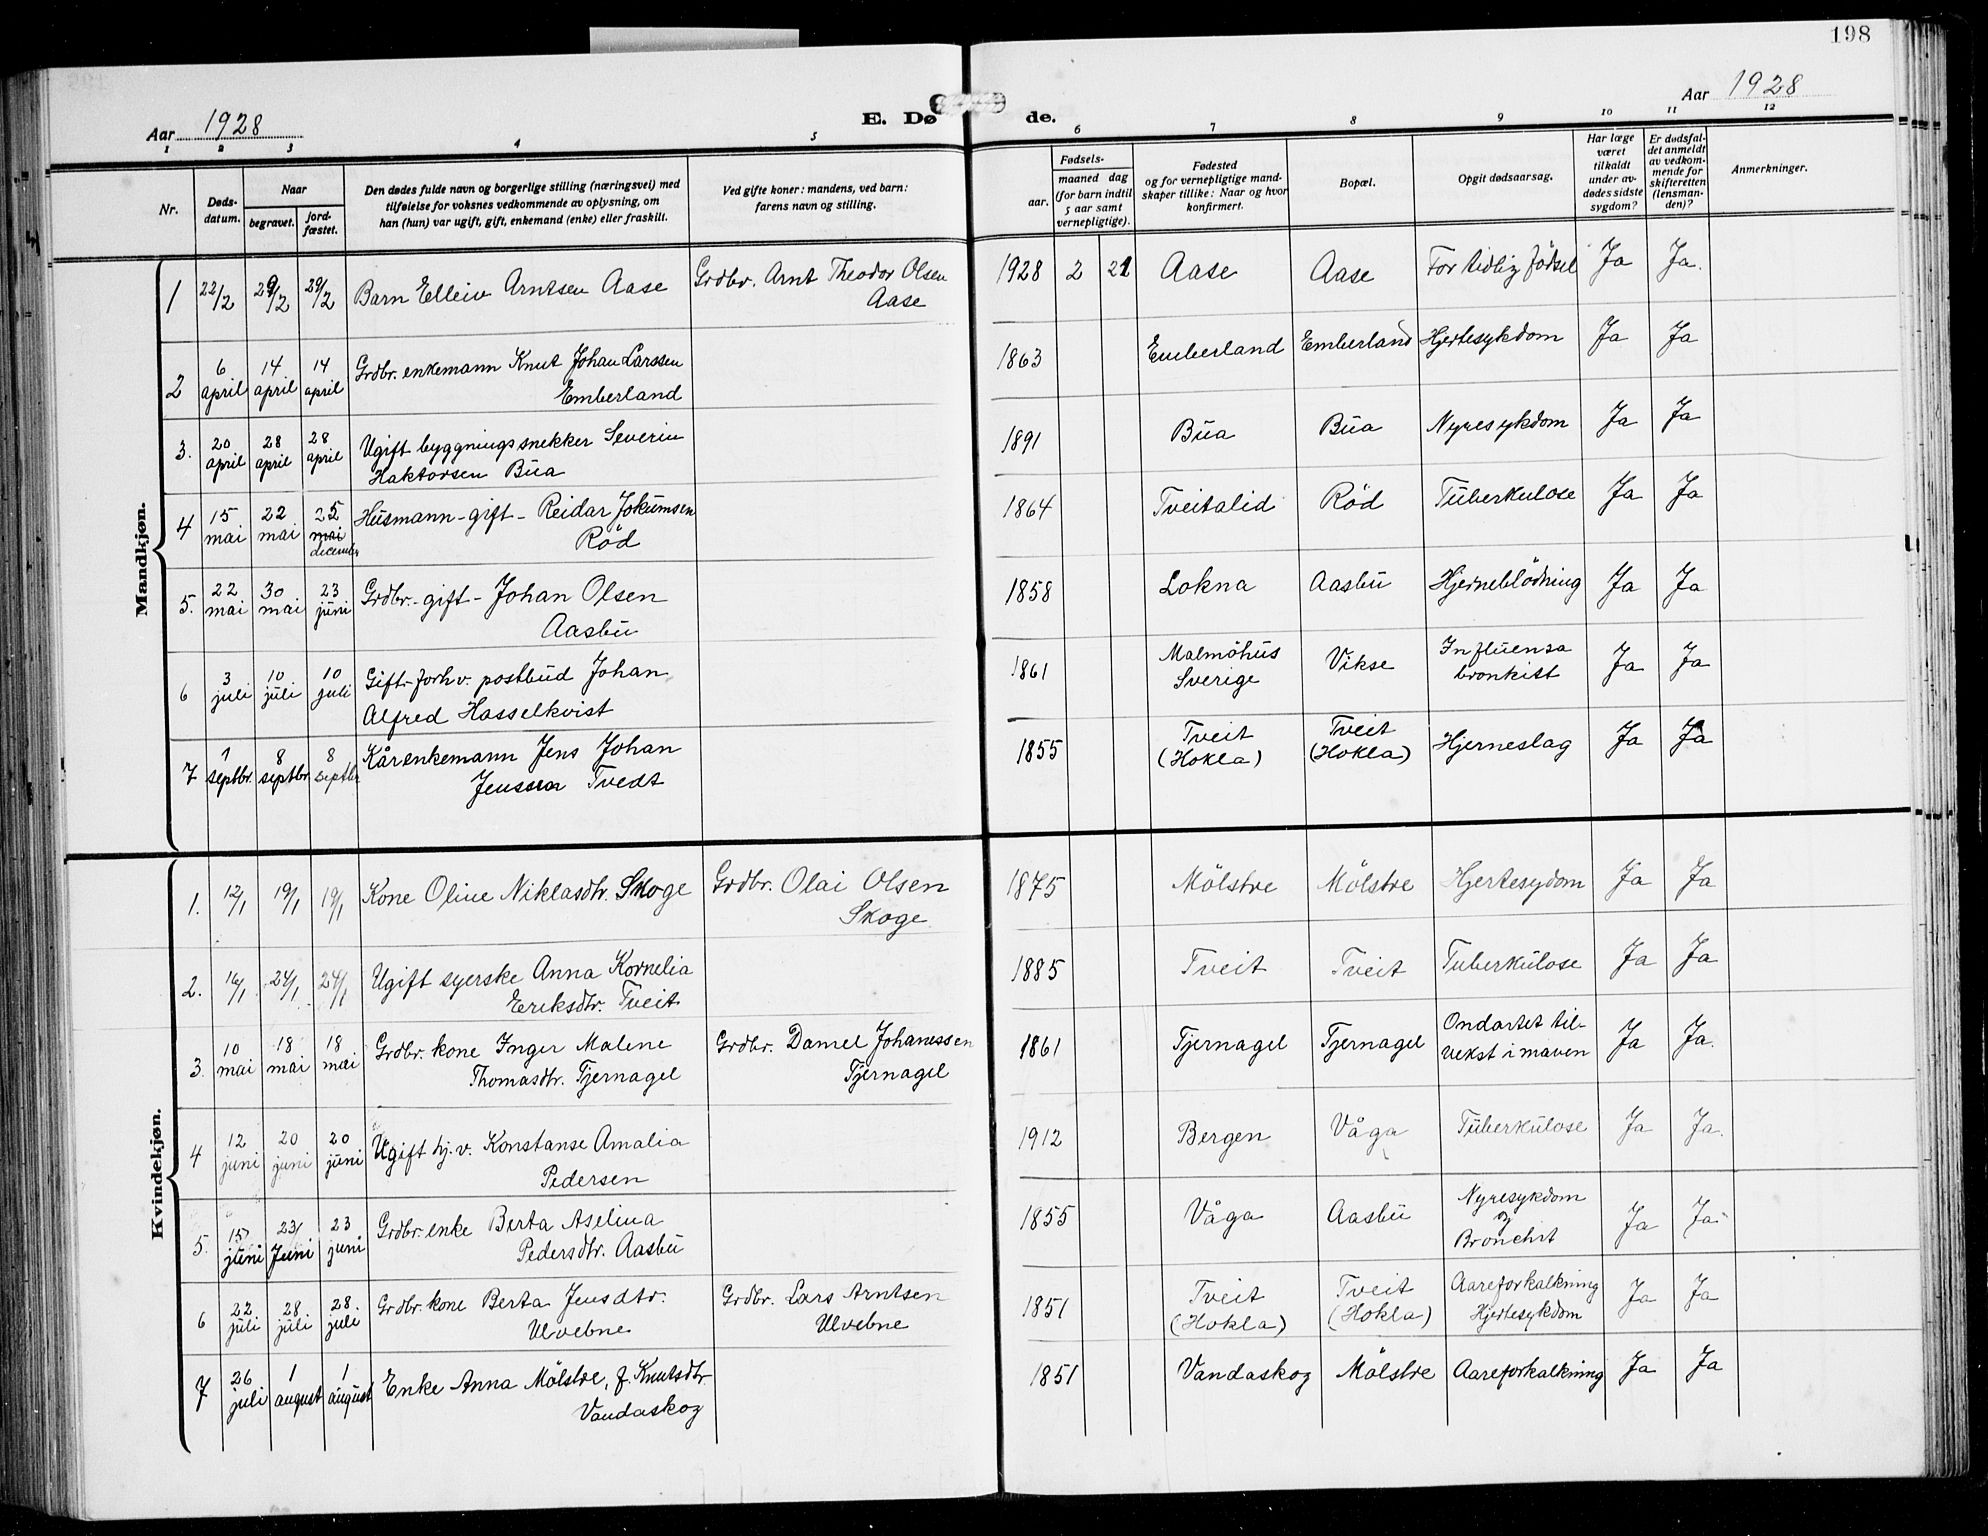 198
Aar 1928
E. Dø de.
Aar 1928
1 2 3 4 5 6 7 8 9 10 11 12
Nr.
Døds-
datum.
Naar
begravet.
jord-
fæstet.
Den dødes fulde navn og borgerlige stilling (næringsvei) med
tilføielse for voksnes vedkommende av oplysning, om
han (hun) var ugift, gift, enkemand (enke) eller fraskilt.
Ved gifte koner: mandens, ved barn:
farens navn og stilling.
Fødsels-
aar.
maaned dag
(for barn indtil
5 aar samt
vernepligtige).
Fødested
og for vernepligtige mand-
skaper tillike: Naar og hvor
konfirmert.
Bopæl.
Opgit dødsaarsag.
Har læge
været
tilkaldt
under av-
dødes sidste
sygdom?
Er dødsfal-
det anmeldt
av vedkom-
mende for
skifteretten
(lensman-
den)?
Anmerkninger.
Mandkjøn.
1 22/2 29/2 29/2 Barn Elleiv Arntsen Aase Grdbr. Arnt Theodor Olsen 1928 2 21 Aase Aase For tidlig fødsel Ja Ja.
Aase
2 6 april 14 april 14 april Grdbr. enkemann Knut Johan Larssen 1863 Emberland Emberland Hjertesykdom Ja Ja
Emberland
3. 20 april 28 april 28 april Ugift byggningssnekker Severin 1891 Bua Bua Nyresykdom Ja Ja
Haktorsen Bua
4 15 mai 22 mai 25 mai december Husmann - gift - Reidar Jokumsen 1864 Tveitalid Röd Tuberkulose Ja Ja
Röd
5. 22 mai 30 mai 23 juni Grdbr. - gift - Johan Olsen 1858 Lokna Aasbu Hjerneblödning Ja Ja
Aasbu
6 3 juli 10 juli 10 juli Gift - forhv. postbud Johan 1861 Malmöhus Vikse Influensa Ja Ja
Alfred Hasselkvist Sverige bronkitt
7 1 septbr. 8 septbr 8 septbr Kårenkemann Jens Johan 1855 Tveit (Hokla) Tveit (Hokla) Hjerneslag Ja Ja
Jenssen Tvedt
Kvindekjøn.
1. 12/1 19/1 19/1 Kone Oline Niklasdtr. Skoge Grdbr. Olai Olsen 1875 Mölstre Mölstre Hjertesydom Ja Ja
Skoge
2. 16/1 24/1 24/1 Ugift syerske Anna Kornelia 1885 Tveit Tveit Tuberkulose Ja Ja
Eriksdtr. Tveit
3. 10 mai 18 mai 18 mai Grdbr. kone Inger Malene Grdbr. Daniel Johanessen 1861 Tjernagel Tjernagel Ondartet til- Ja Ja.
Thomasdtr. Tjernagel Tjernagel vekst i maven
4 12 juni 20 juni 20 juni Ugift hj. v. Konstanse Amalia 1912 Bergen Våga Tuberkulose Ja Ja.
Pedersen
5. 15 juni 23/ Juni 23 juni Grdbr. enke Berta Aselina 1855 Våga Aasbu Nyresykdom Ja Ja
Pedersdtr. Aasbu og Bronchit
6 22 juli 28. juli 28. juli Grdbr. kone Berta Jensdtr. Grdbr. Lars Arntsen 1851 Tveit (Hokla) Tveit (Hokla) Aareforkalkning Ja Ja
Ulvebne Ulvebne Hjertesykdom
7 26 juli 1 august 1 august Enke Anna Mölstre, f. Knutsdtr. 1851 Vandaskog Mölstre Aareforkalkning Ja Ja
Vandaskog